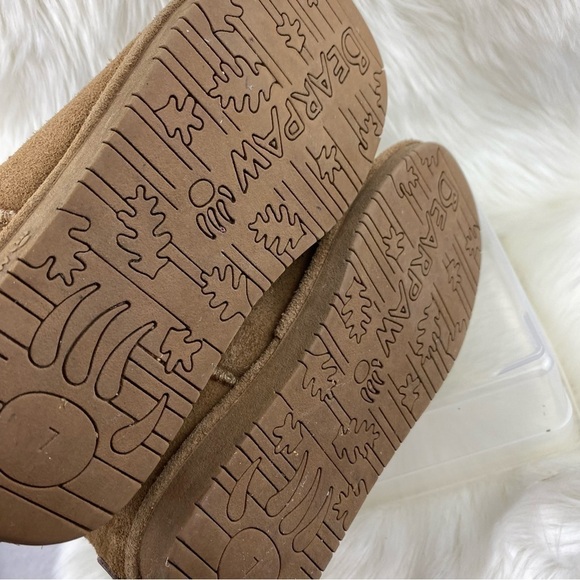 BEARPAW
7
BEARPAW
7